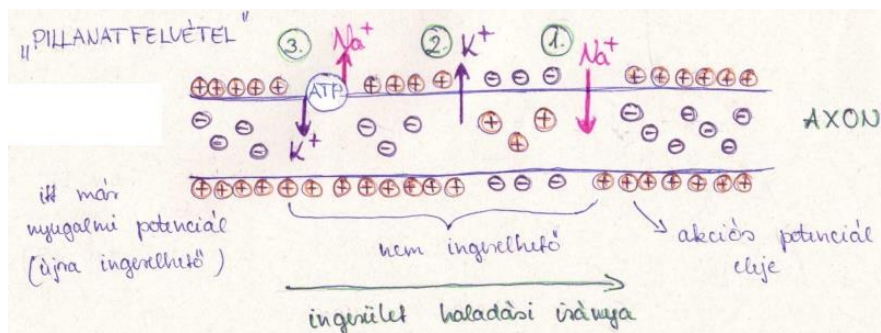 „PILLANATFELVÉTEL"
3. Na+
2. K+
1. Na+
ATP
K+
AXON
itt már
nyugalmi potenciál
(újra ingerelhető)
nem ingerelhető
akciós potenciál
eleje
ingerület haladási iránya